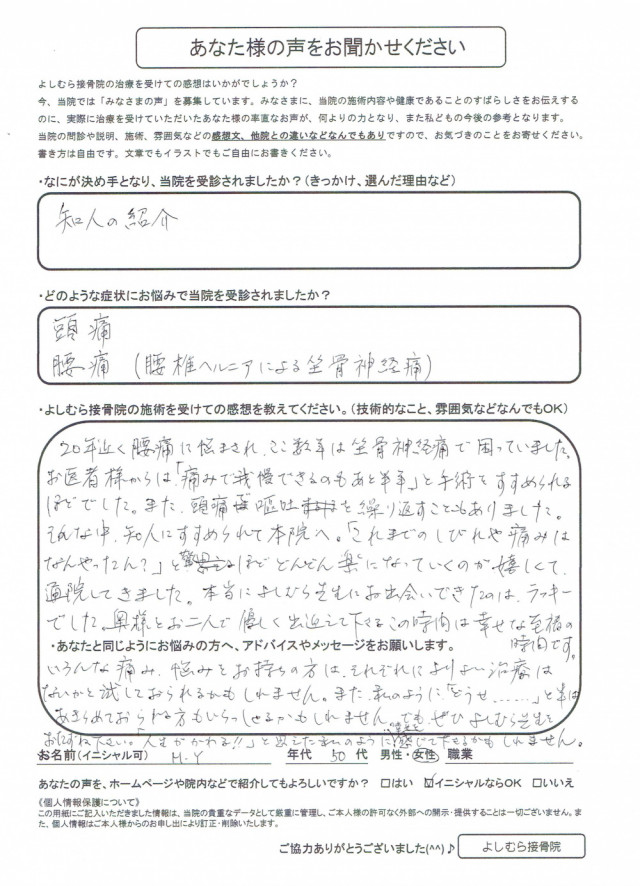 あなた様の声をお聞かせください
よしむら接骨院の治療を受けての感想はいかがでしょうか？
今、当院では「みなさまの声」を募集しています。みなさまに、当院の施術内容や健康であることのすばらしさをお伝えする
のに、実際に治療を受けていただいたあなた様の率直なお声が、何よりの力となり、また私どもの今後の参考となります。
当院の問診や説明、施術、雰囲気などの感想文、他院との違いなどなんでもありですので、お気づきのことをお寄せください。
書き方は自由です。文章でもイラストでもご自由にお書きください。
・なにが決め手となり、当院を受診されましたか？（きっかけ、選んだ理由など）
知人の紹介
・どのような症状にお悩みで当院を受診されましたか？
頭痛
腰痛 （腰椎ヘルニアによる坐骨神経痛）
・よしむら接骨院の施術を受けての感想を教えてください。（技術的なこと、雰囲気などなんでもOK）
20年近く腰痛に悩まされ、ここ数年は坐骨神経痛で困っていました。
お医者様からは「痛みで我慢できるのもあと半年」と手術をすすめられる
ほどでした。また、頭痛 嘔吐 を繰り返すこともありました。
そんな中、知人にすすめられて本院へ。「これまでのしびれや痛みは
なんやったん？」と ほどどんどん楽になっていくのが嬉しくて、
通院してきました。本当によしむら先生にお出会いできたのは、ラッキー
でした。奥様とお二人で優しく出迎えて下さるこの時間は幸せな至福の
時間です。
・あなたと同じようにお悩みの方へ、アドバイスやメッセージをお願いします。
いろんな痛み、悩みをお持ちの方は、それぞれによりよい治療は
ないかと試しておられるかもしれません。また、私のように、「どうせ……」と半ば
あきらめておられる方もいらっしゃるかもしれません。でも、ぜひよしむら先生を
おたずね下さい。「人生がかわる!!」と思えた私のように 感じて下さるかもしれません。
お名前（イニシャル可） M.Y 年代 50 代 男性・女性 職業
あなたの声を、ホームページや院内などで紹介してもよろしいですか？ □はい ☑イニシャルならOK □いいえ
《個人情報保護について》
この用紙にご記入いただきました情報は、当院の貴重なデータとして厳重に管理し、ご本人様の許可なく外部への開示・提供することは一切ございません。ま
た、個人情報はご本人様からのお申し出により訂正・削除いたします。
ご協力ありがとうございました(^^)♪ よしむら接骨院